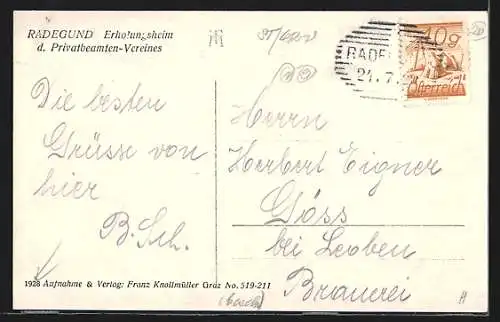 RADEGUND Erholungsheim
d. Privatbeamten-Vereines
Die besten
Grüsse von
hier
B. Sch.
1928 Aufnahme & Verlag: Franz Knollmüller Graz No. 519-211
RADE
21. 7.
10g
Österreich
Herrn
Herbert Eigner
Göss
bei Leoben
Brauerei